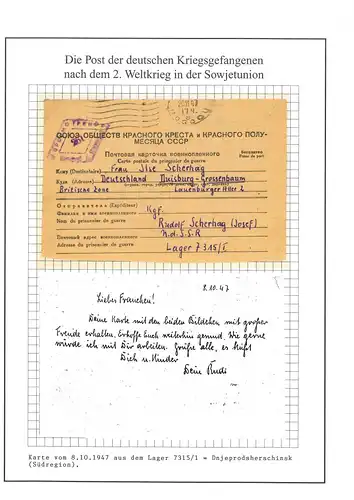 Die Post der deutschen Kriegsgefangenen
nach dem 2. Weltkrieg in der Sowjetunion
СОЮЗ ОБЩЕСТВ КРАСНОГО КРЕСТА и КРАСНОГО ПОЛУ-
МЕСЯЦА СССР
Почтовая карточка военнопленного
Carte postale du prisonnier de guerre
Кому (Destinataire) Frau Ilse Scherhag
Куда (Adresse) Deutschland Duisburg-Grossenbaum
Britische Zone Lauenburger Allee 2
Отправитель (Expéditeur)
Фамилия и имя военнопленного Kgf.
Nom du prisonnier de guerre Rudolf Scherhag (Josef)
U.d.S.S.R
Почтовый адрес военнопленного
Adresse du prisonnier de guerre Lager 7315/I
8.10.47
Liebes Frauchen!
Deine Karte mit den beiden Bildchen mit großer
Freude erhalten. Erhoffe Euch weiterhin gesund. Wie gerne
würde ich mit Dir arbeiten. Grüße alle, es küßt
Dich u. Kinder
Dein Rudi
Karte vom 8.10.1947 aus dem Lager 7315/1 = Dnjeprodsherschinsk
(Südregion).